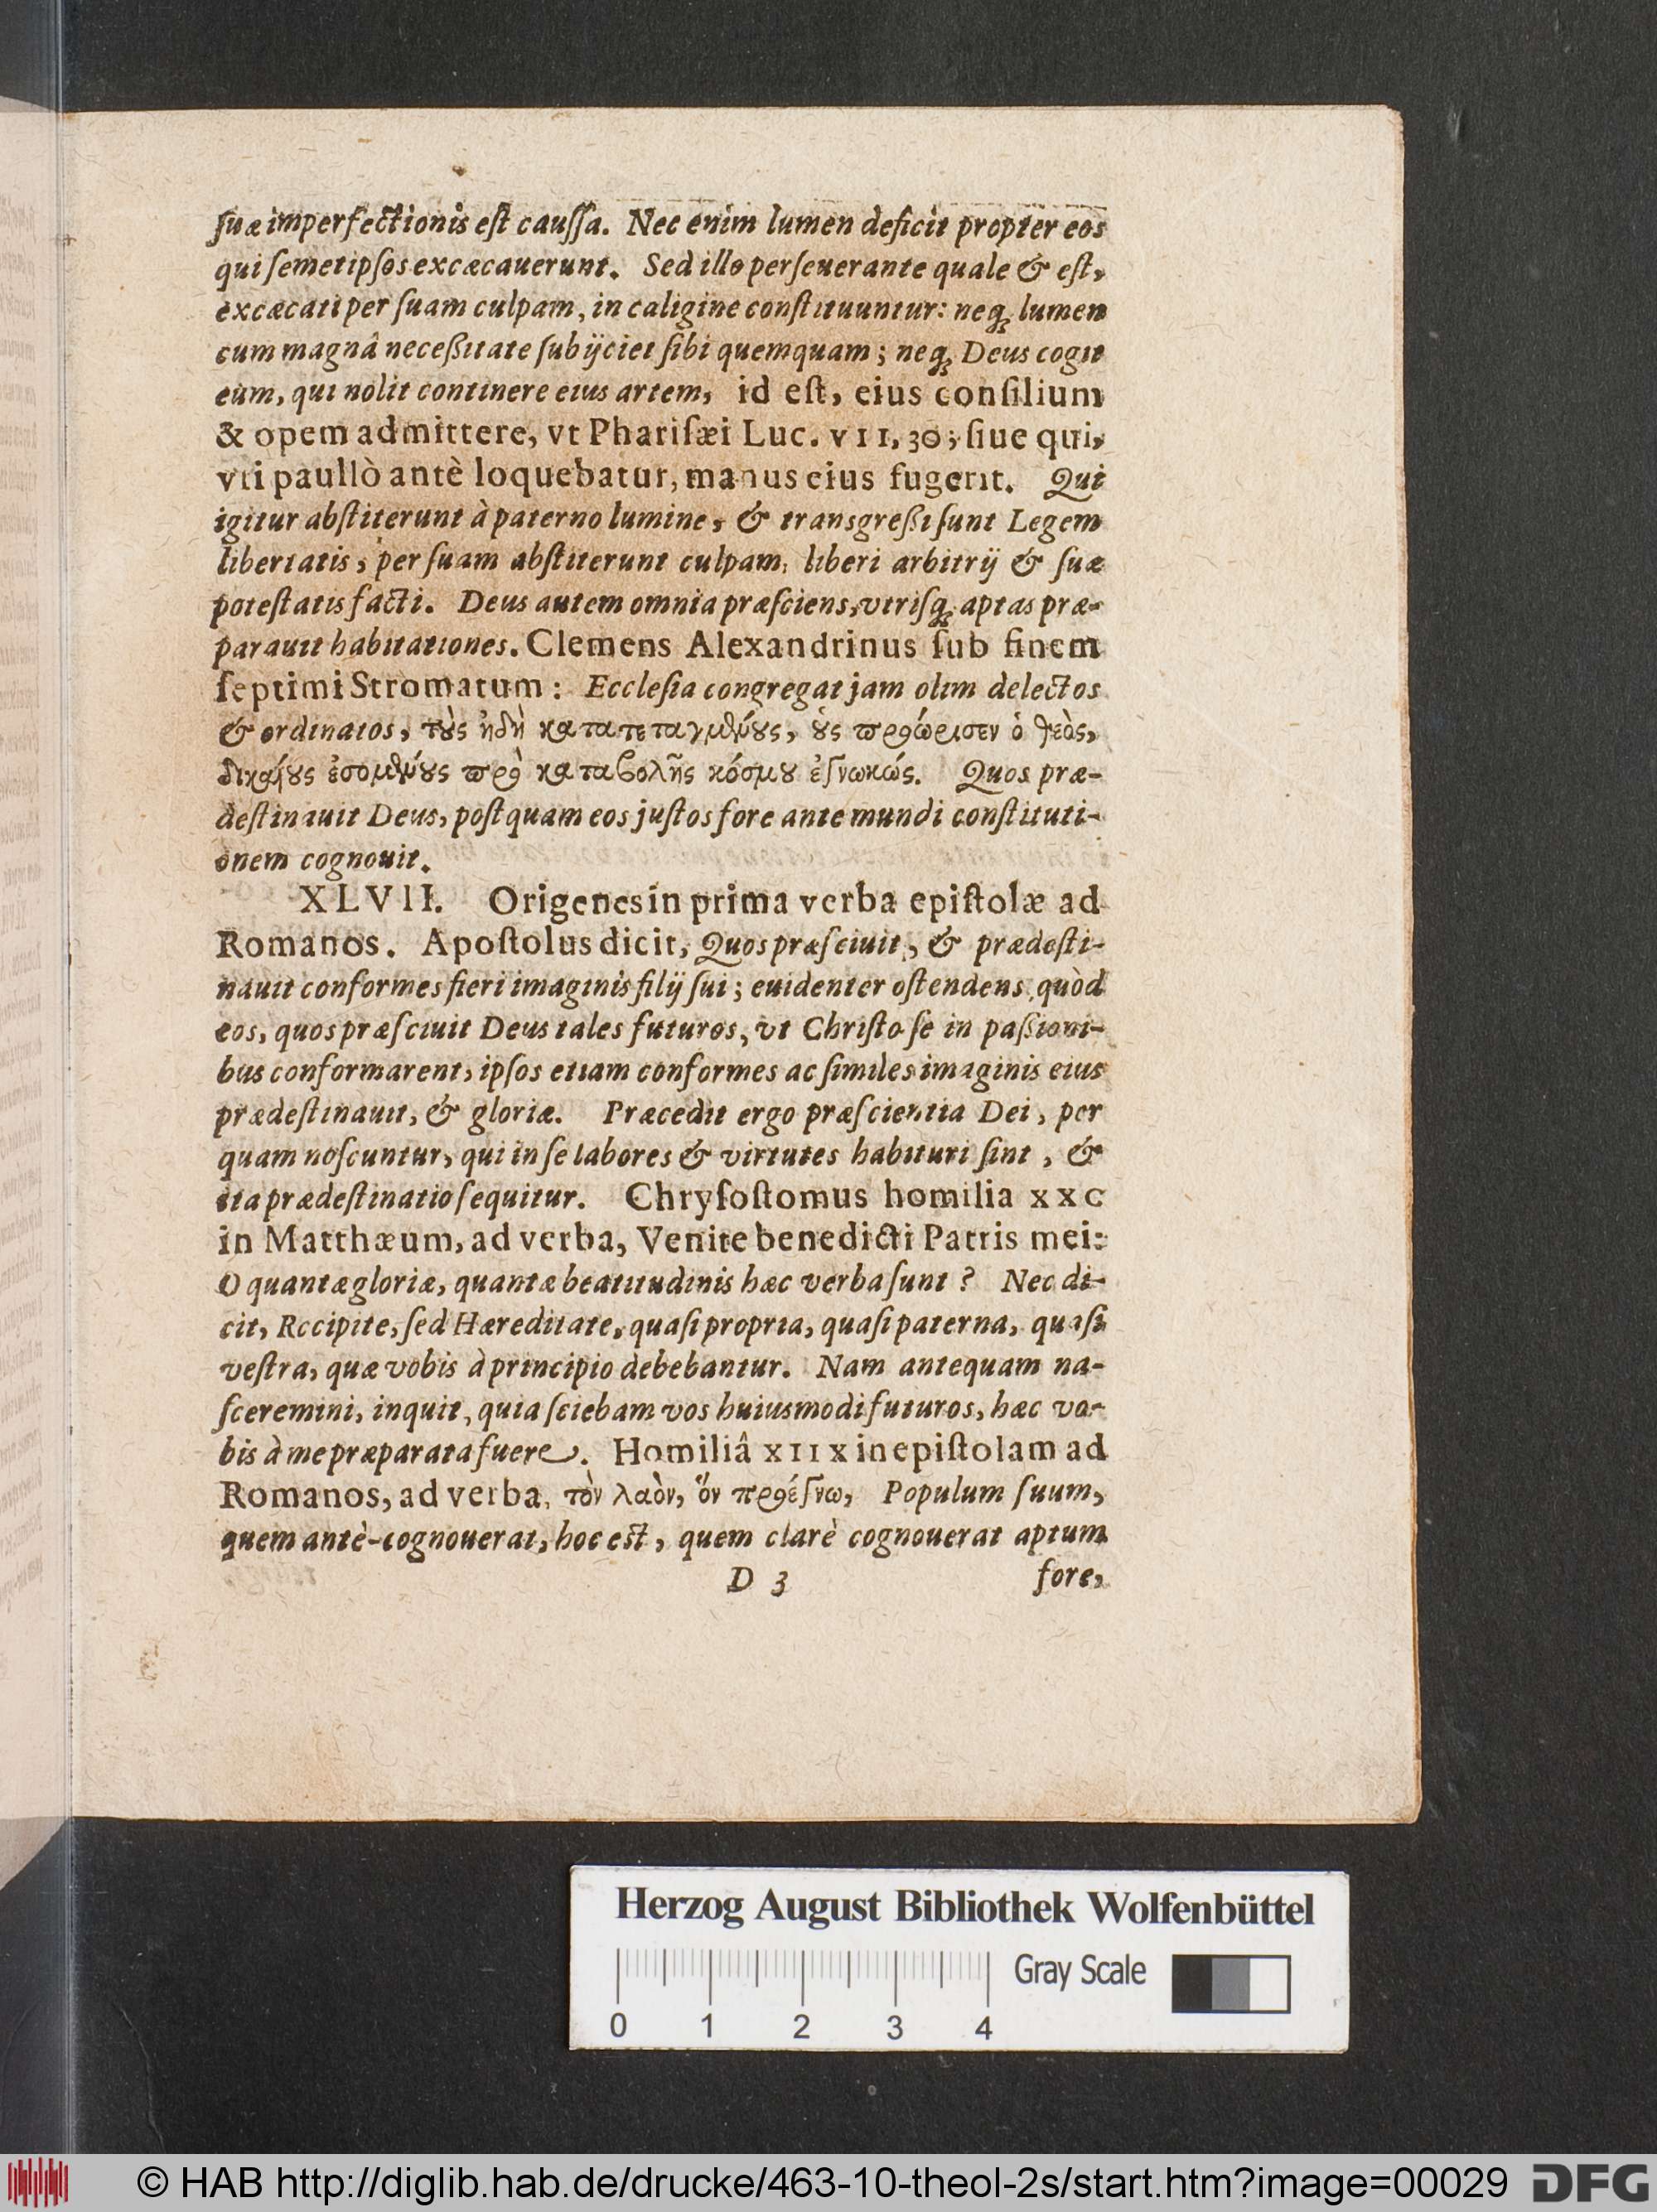 ſuæ imperfectionis eſt cauſſa. Nec enim lumen deficit propter eos
qui ſemetipſos excæcauerunt. Sed illo perſeuerante quale & eſt,
excæcati per ſuam culpam, in caligine conſtituuntur: neq; lumen
cum magnâ neceßitate ſubijciet ſibi quemquam; neq; Deus cogit
eum, qui nolit continere eius artem, id eſt, eius conſilium
& opem admittere, vt Phariſæi Luc. VII, 30; ſiue qui,
vti paullò antè loquebatur, manus eius fugerit. Qui
igitur abſtiterunt à paterno lumine, & transgreßi ſunt Legem
libertatis, per ſuam abſtiterunt culpam, liberi arbitrij & ſuæ
poteſtatis facti. Deus autem omnia præſciens, vtriſq; aptas præ-
parauit habitationes. Clemens Alexandrinus ſub finem
ſeptimi Stromatum: Eccleſia congregat jam olim delectos
& ordinatos, τȣ̀ς ἠδὴ κατατεταγμένȣς, ȣ̔̀ς ϖροώρισεν ὁ θεὸς,
δικαίȣς ἐσομένȣς ϖρὸ καταβολῆς κόσμȣ ἐγνωκώς. Quos præ-
deſtinauit Deus, poſtquam eos juſtos fore ante mundi conſtituti-
onem cognouit.
XLVII. Origenes in prima verba epiſtolæ ad
Romanos. Apoſtolus dicit, Quos præſciuit, & prædeſti-
nauit conformes fieri imaginis filij ſui; euidenter oſtendens, quòd
eos, quos præſciuit Deus tales futuros, vt Chriſto ſe in paſſioni-
bus conformarent, ipſos etiam conformes ac ſimiles imaginis eius
prædeſtinauit, & gloriæ. Præcedit ergo præſcientia Dei, per
quam noſcuntur, qui in ſe labores & virtutes habituri ſint, &
ita prædeſtinatio ſequitur. Chryſoſtomus homilia XXC
in Matthæum, ad verba, Venite benedicti Patris mei:
O quantæ gloriæ, quantæ beatitudinis hæc verba ſunt? Nec di-
cit, Recipite, ſed Hæreditate, quaſi propria, quaſi paterna, quaſi
veſtra, quæ vobis à principio debebantur. Nam antequam na-
ſceremini, inquit, quia ſciebam vos huiusmodi futuros, hæc vo-
bis à me præparata fuere. Homiliâ XIIX in epiſtolam ad
Romanos, ad verba, τὸν λαὸν, ὅν προέγνω, Populum ſuum,
quem antè-cognouerat, hoc eſt, quem clarè cognouerat aptum
D 3 fore,
Herzog August Bibliothek Wolfenbüttel
Gray Scale
0 1 2 3 4
© HAB http://diglib.hab.de/drucke/463-10-theol-2s/start.htm?image=00029 DFG